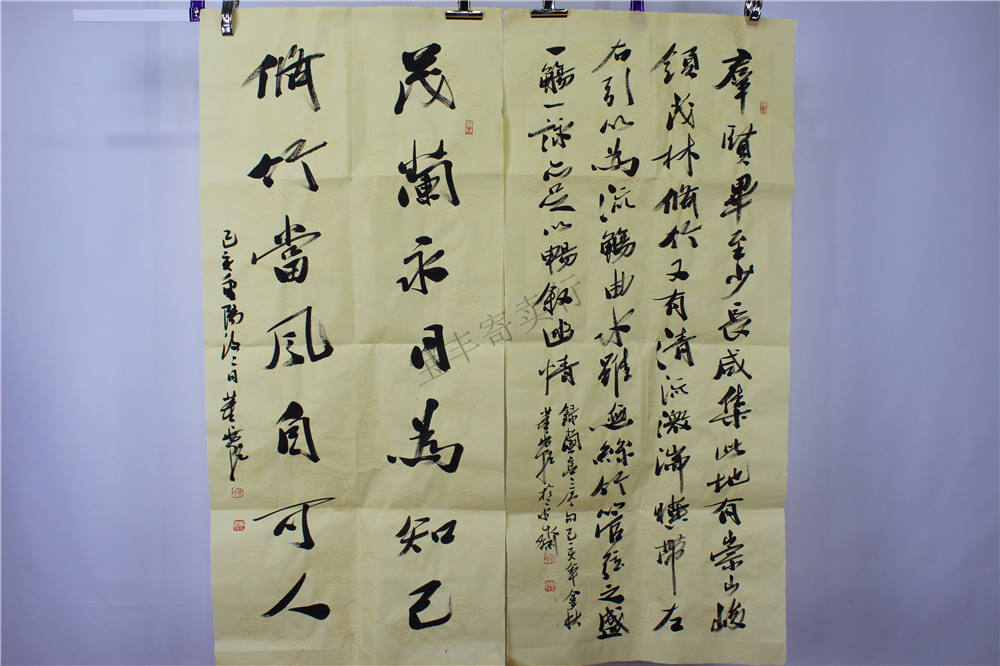 羣賢畢至少長咸集此地有崇山峻
領茂林脩竹又有清流激湍暎帶左
右引以為流觴曲水雖無絲竹管弦之盛
一觴一詠亦足以暢叙幽情
録蘭亭序句己亥年金秋
茂蘭永日為知己
脩竹當風自可人
己亥重陽後二日董
丰寄卖行